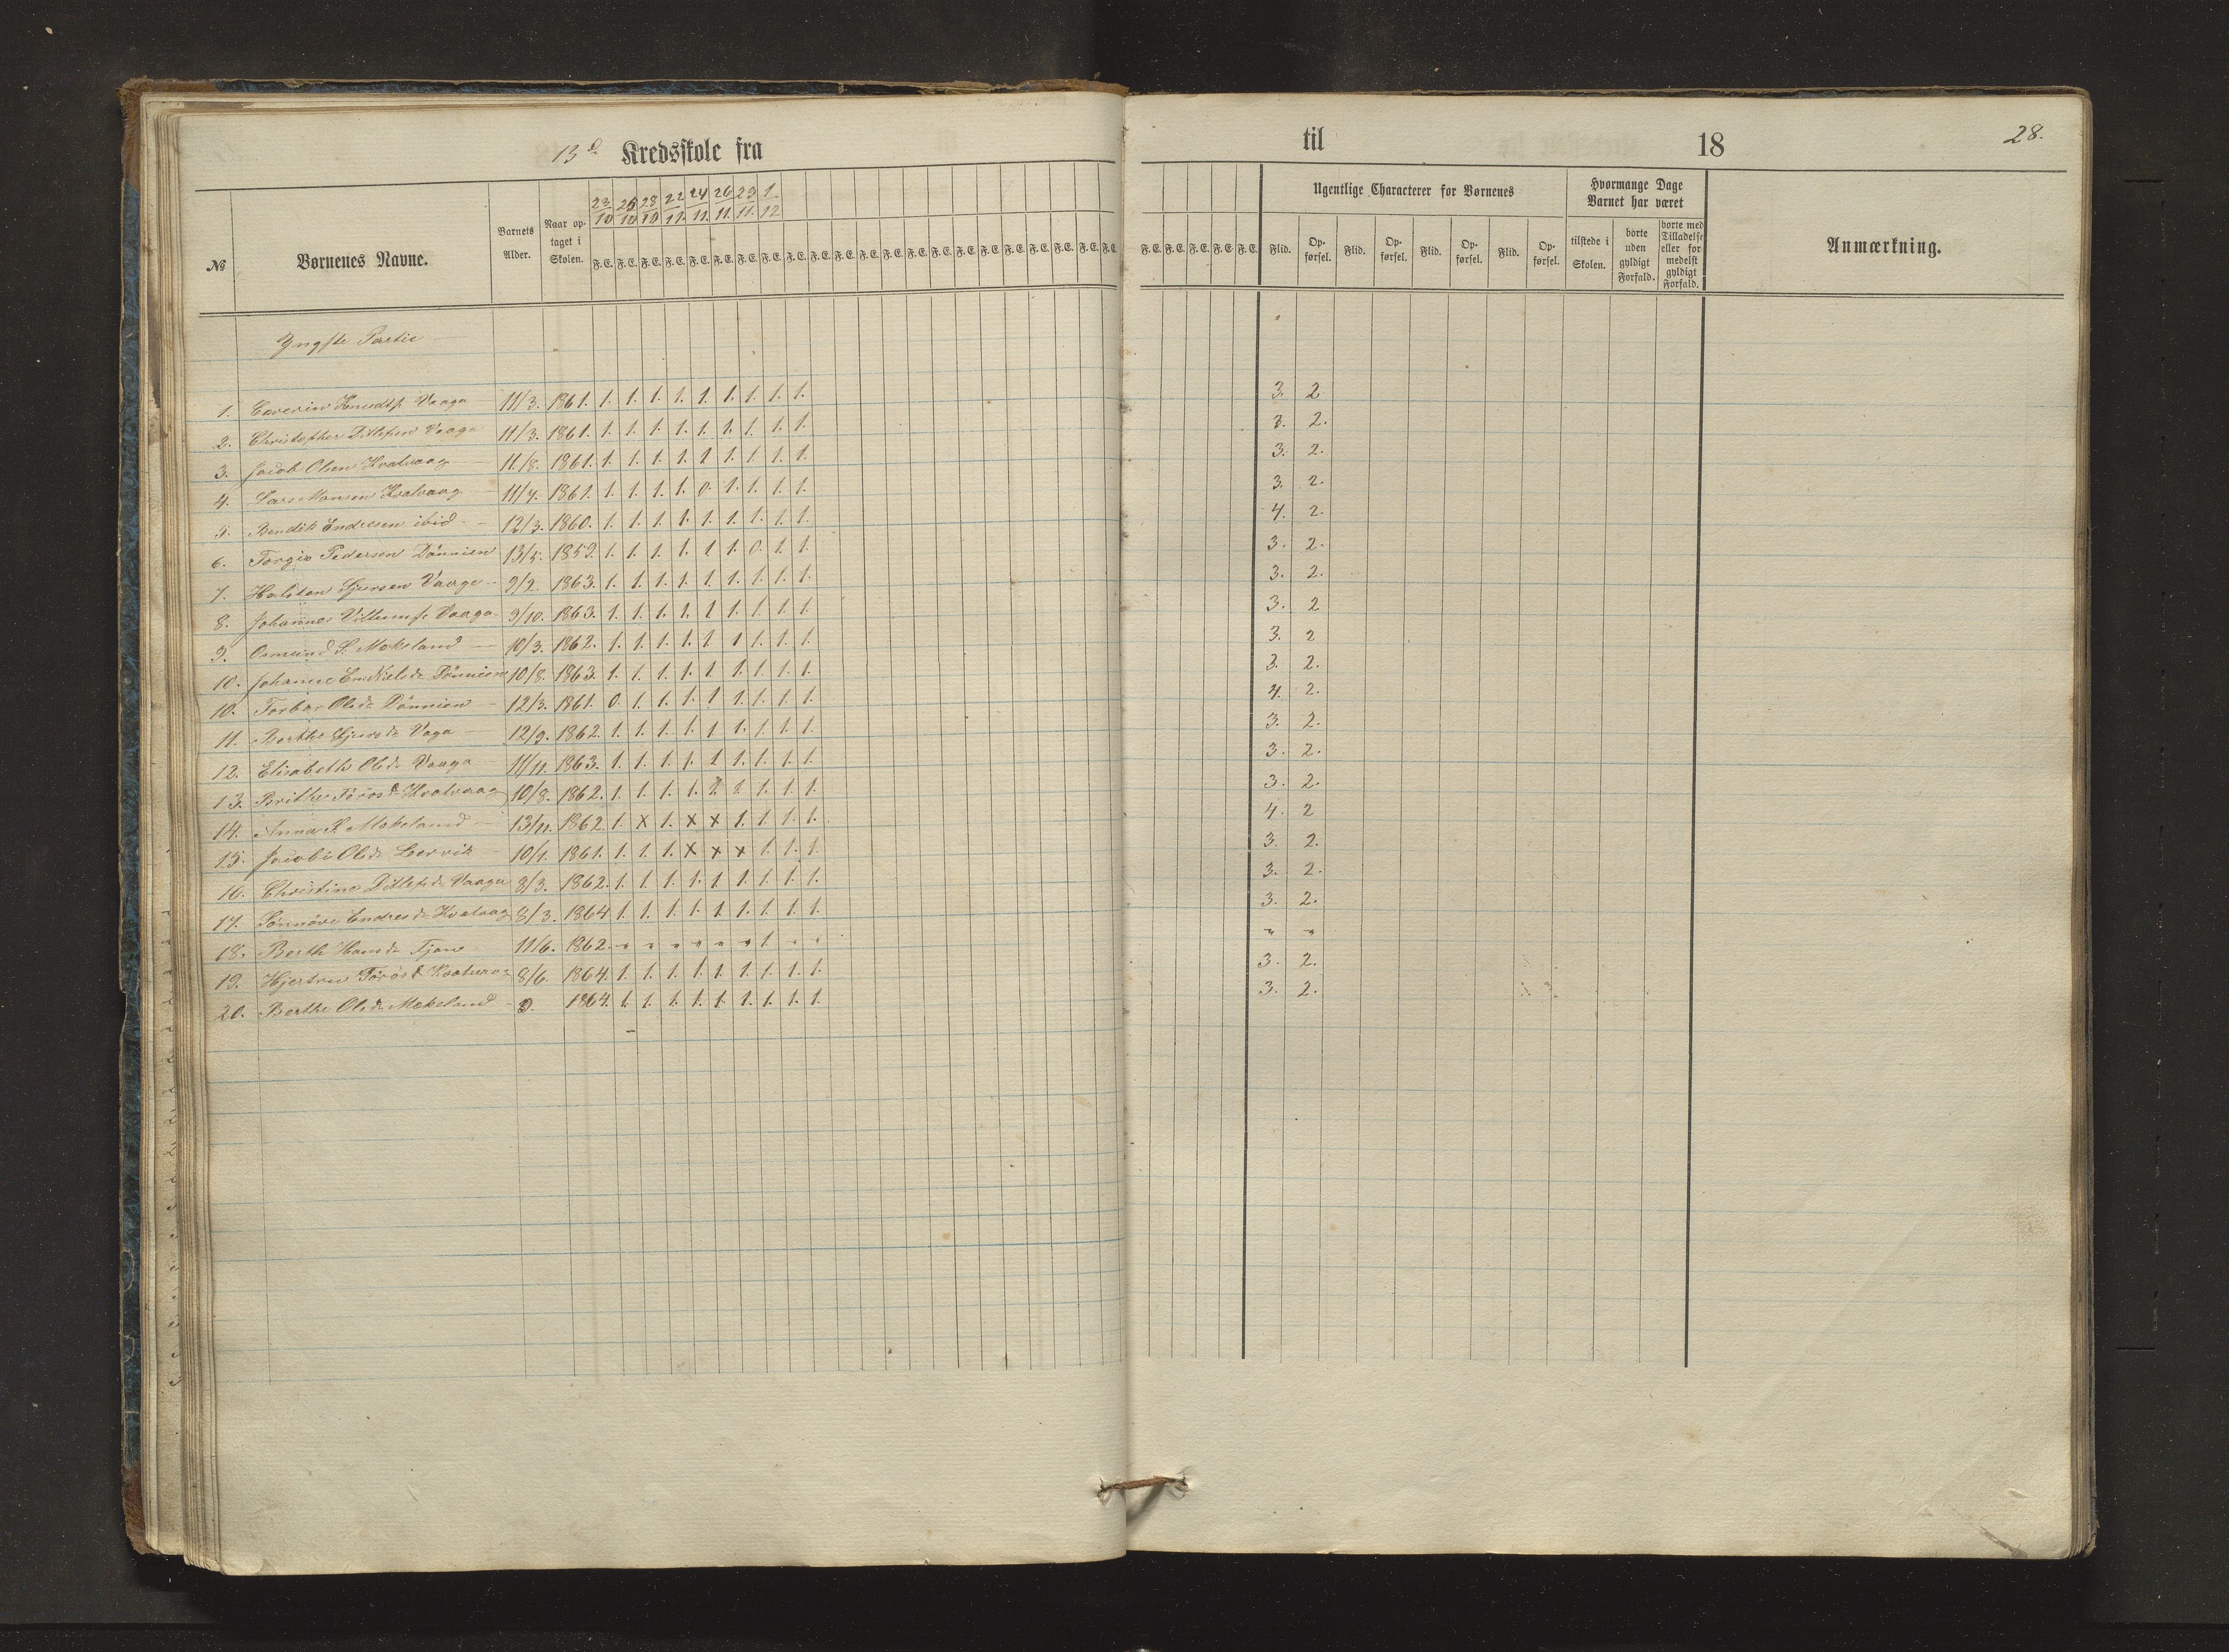 13de Kredsskole fra til 18 28.
№ Børnenes Navne. Barnets Alder. Naar optaget i Skolen. 23/10 26/10 28/10 22/11. 24/11. 26/11. 29/11. 1/12 F.E. F.E. F.E. F.E. F.E. F.E. F.E. F.E. F.E. F.E. F.E. F.E. F.E. F.E. F.E. F.E. F.E. F.E. F.E. F.E. F.E. F.E. F.E. F.E. F.E. F.E. Ugentlige Characterer for Børnenes Flid. Opførsel. Flid. Opførsel. Flid. Opførsel. Flid. Opførsel. Hvormange Dage Barnet har været tilstede i Skolen. borte uden gyldigt Forfald. borte med Tilladelse eller for medelst gyldigt Forfald. Anmærkning.
Yngste Partie
1. Knudts. Vaaga 11/3. 1861. 1. 1. 1. 1. 1. 1. 1. 1. 1. 3. 2
2. Christopher Ditlefsen Vaaga 11/3. 1861. 1. 1. 1. 1. 1. 1. 1. 1. 1. 3. 2.
3. Jacob Olsen Kvalvaag 11/8. 1861. 1. 1. 1. 1. 1 1. 1. 1. 1. 3. 2.
4. Lars Monsen Kvalvaag 11/7. 1861. 1. 1. 1. 1. 0. 1. 1. 1. 1. 3. 2.
5. Bendik Endresen ibid 12/3. 1860. 1. 1. 1. 1. 1. 1. 1. 1. 1. 4. 2.
6. Torgis Pedersen Dønnien 13/5. 1859. 1. 1. 1. 1. 1 1. 0. 1. 1. 3. 2.
7. Halsten Sjursen Vaage 9/2. 1863. 1. 1. 1. 1. 1. 1. 1. 1. 1. 3. 2.
8. Johannes Villumss. Vaaga 9/10. 1863. 1. 1. 1. 1. 1 1. 1. 1. 1. 3. 2
9. Osmund S. Mokeland 10/3. 1862. 1. 1. 1. 1. 1 1 1. 1. 1. 3. 2
10. Johanne Dønnien 10/8. 1863. 1. 1. 1. 1. 1 1. 1. 1. 1. 3. 2.
10. Torbor Olsdr Dønnien 12/3. 1861. 0. 1. 1. 1. 1 1. 1. 1. 1. 4. 2.
11. Berthe Sjursdr Vaga 12/9. 1862. 1. 1. 1. 1. 1 1. 1. 1. 1. 3. 2.
12. Elisabeth Olsdr Vaaga 11/11. 1863. 1. 1. 1. 1. 1 1. 1. 1. 1. 3. 2.
13. Brithe Kvalvaag 10/8. 1862. 1. 1. 1. 1. 1. 1. 1. 1. 1. 3. 2.
14. Anna K. Mokeland 13/11. 1862. 1. X 1. X X 1. 1. 1. 1. 4. 2
15. Jacobi Olsdr Lervik 10/1. 1861. 1. 1. 1. X X X 1. 1. 1. 3. 2.
16. Christine Ditlefsdr Vaaga 8/3. 1862. 1. 1. 1. 1. 1 1. 1. 1. 1. 3. 2.
17. Sønnøve Endresdr Kvalvaag 8/3. 1864 1. 1. 1. 1. 1. 1. 1. 1. 1. 3. 2.
18. Berth Hansdr 11/6. 1862. " " " " " " 1. " " " "
19. Hjertrue Kvalvaag 8/6. 1864. 1. 1. 1. 1. 1. 1. 1. 1. 1. 3. 2.
20. Berthe Olsdr Mokeland 9. 1864. 1. 1. 1. 1. 1. 1. 1. 1. 1. 3. 2.